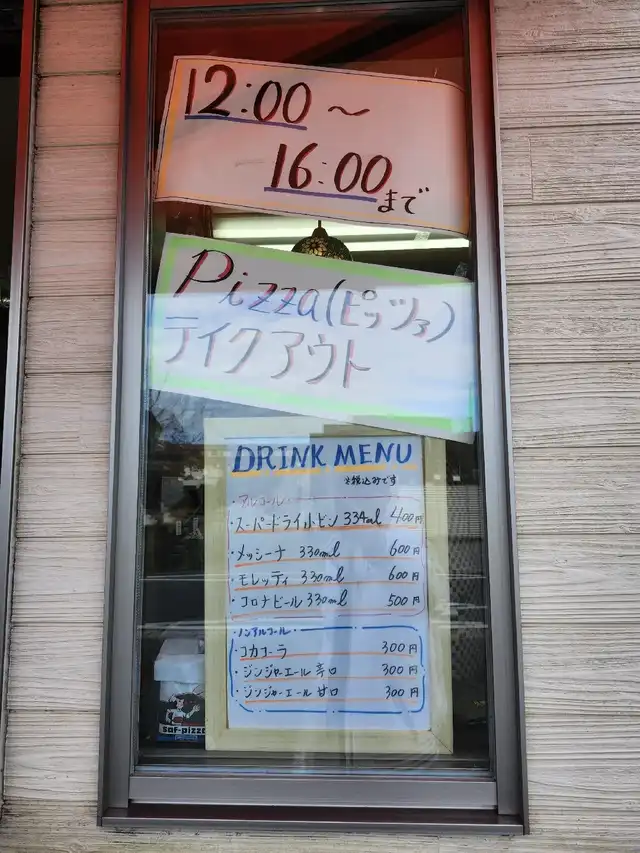 12:00～
16:00まで
Pizza(ピッツァ)
テイクアウト
DRINK MENU
※税込みです
・アルコール・
・スーパードライ小ビン 334ml 400円
・メッシーナ 330ml 600円
・モレッティ 330ml 600円
・コロナビール 330ml 500円
・ノンアルコール・
・コカコーラ 300円
・ジンジャーエール 辛口 300円
・ジンジャーエール 甘口 300円
saf-pizza